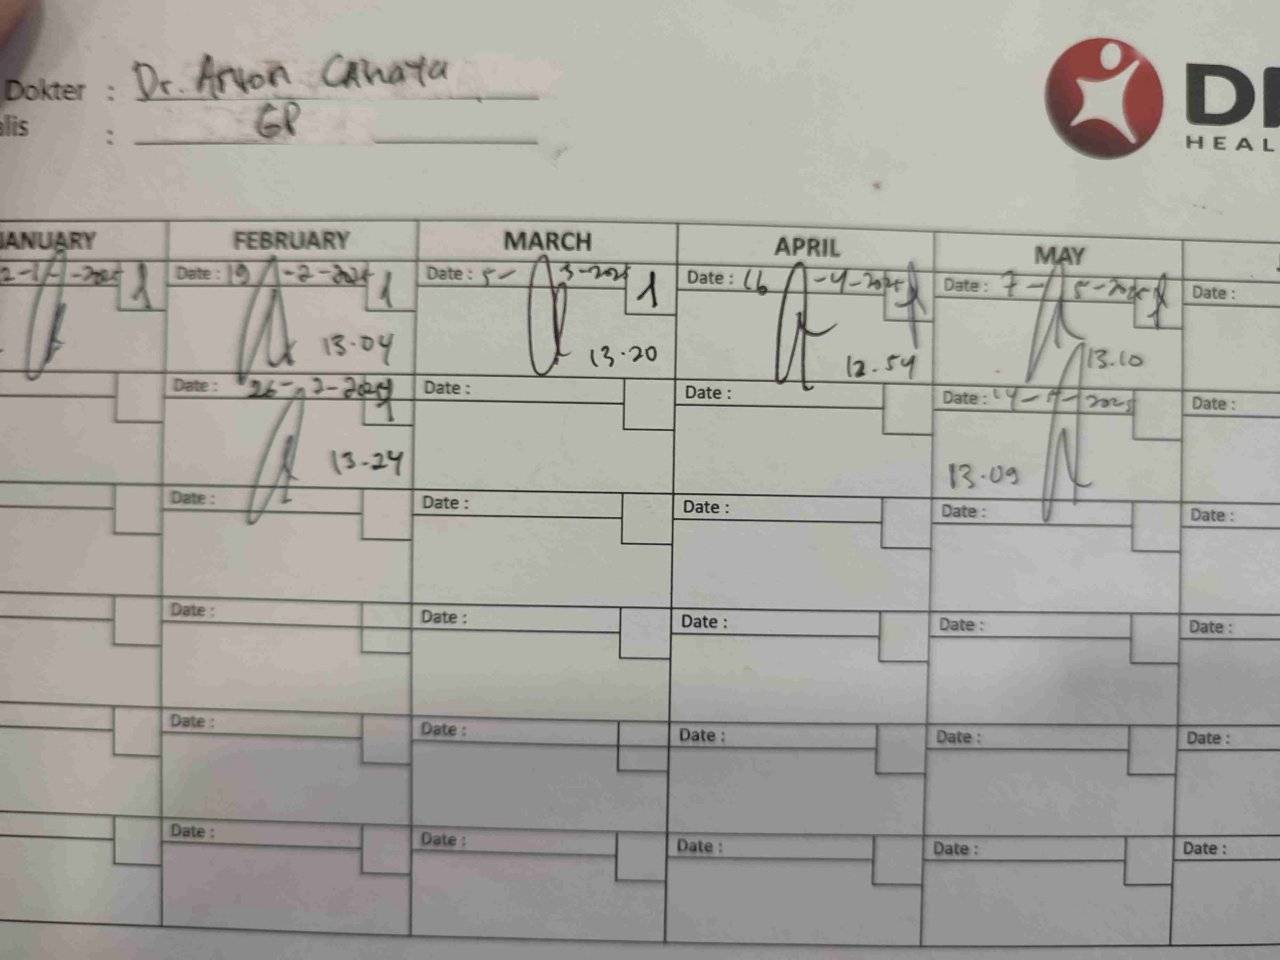 Dokter : Dr. Arvon Cahaya
alis : GP
HEAL
JANUARY FEBRUARY MARCH APRIL MAY
Date : 19-2-2025 1 Date : 5-3-2025 1 Date : 16-4-2025 1 Date : 7-5-2025 1 Date :
13.04 13.20 12.54 13.10
Date : 26-2-2025 1 Date : Date : Date : 14-5-2025 Date :
13.24 13.09
Date : Date : Date : Date : Date :
Date : Date : Date : Date : Date :
Date : Date : Date : Date : Date :
Date : Date : Date : Date : Date :